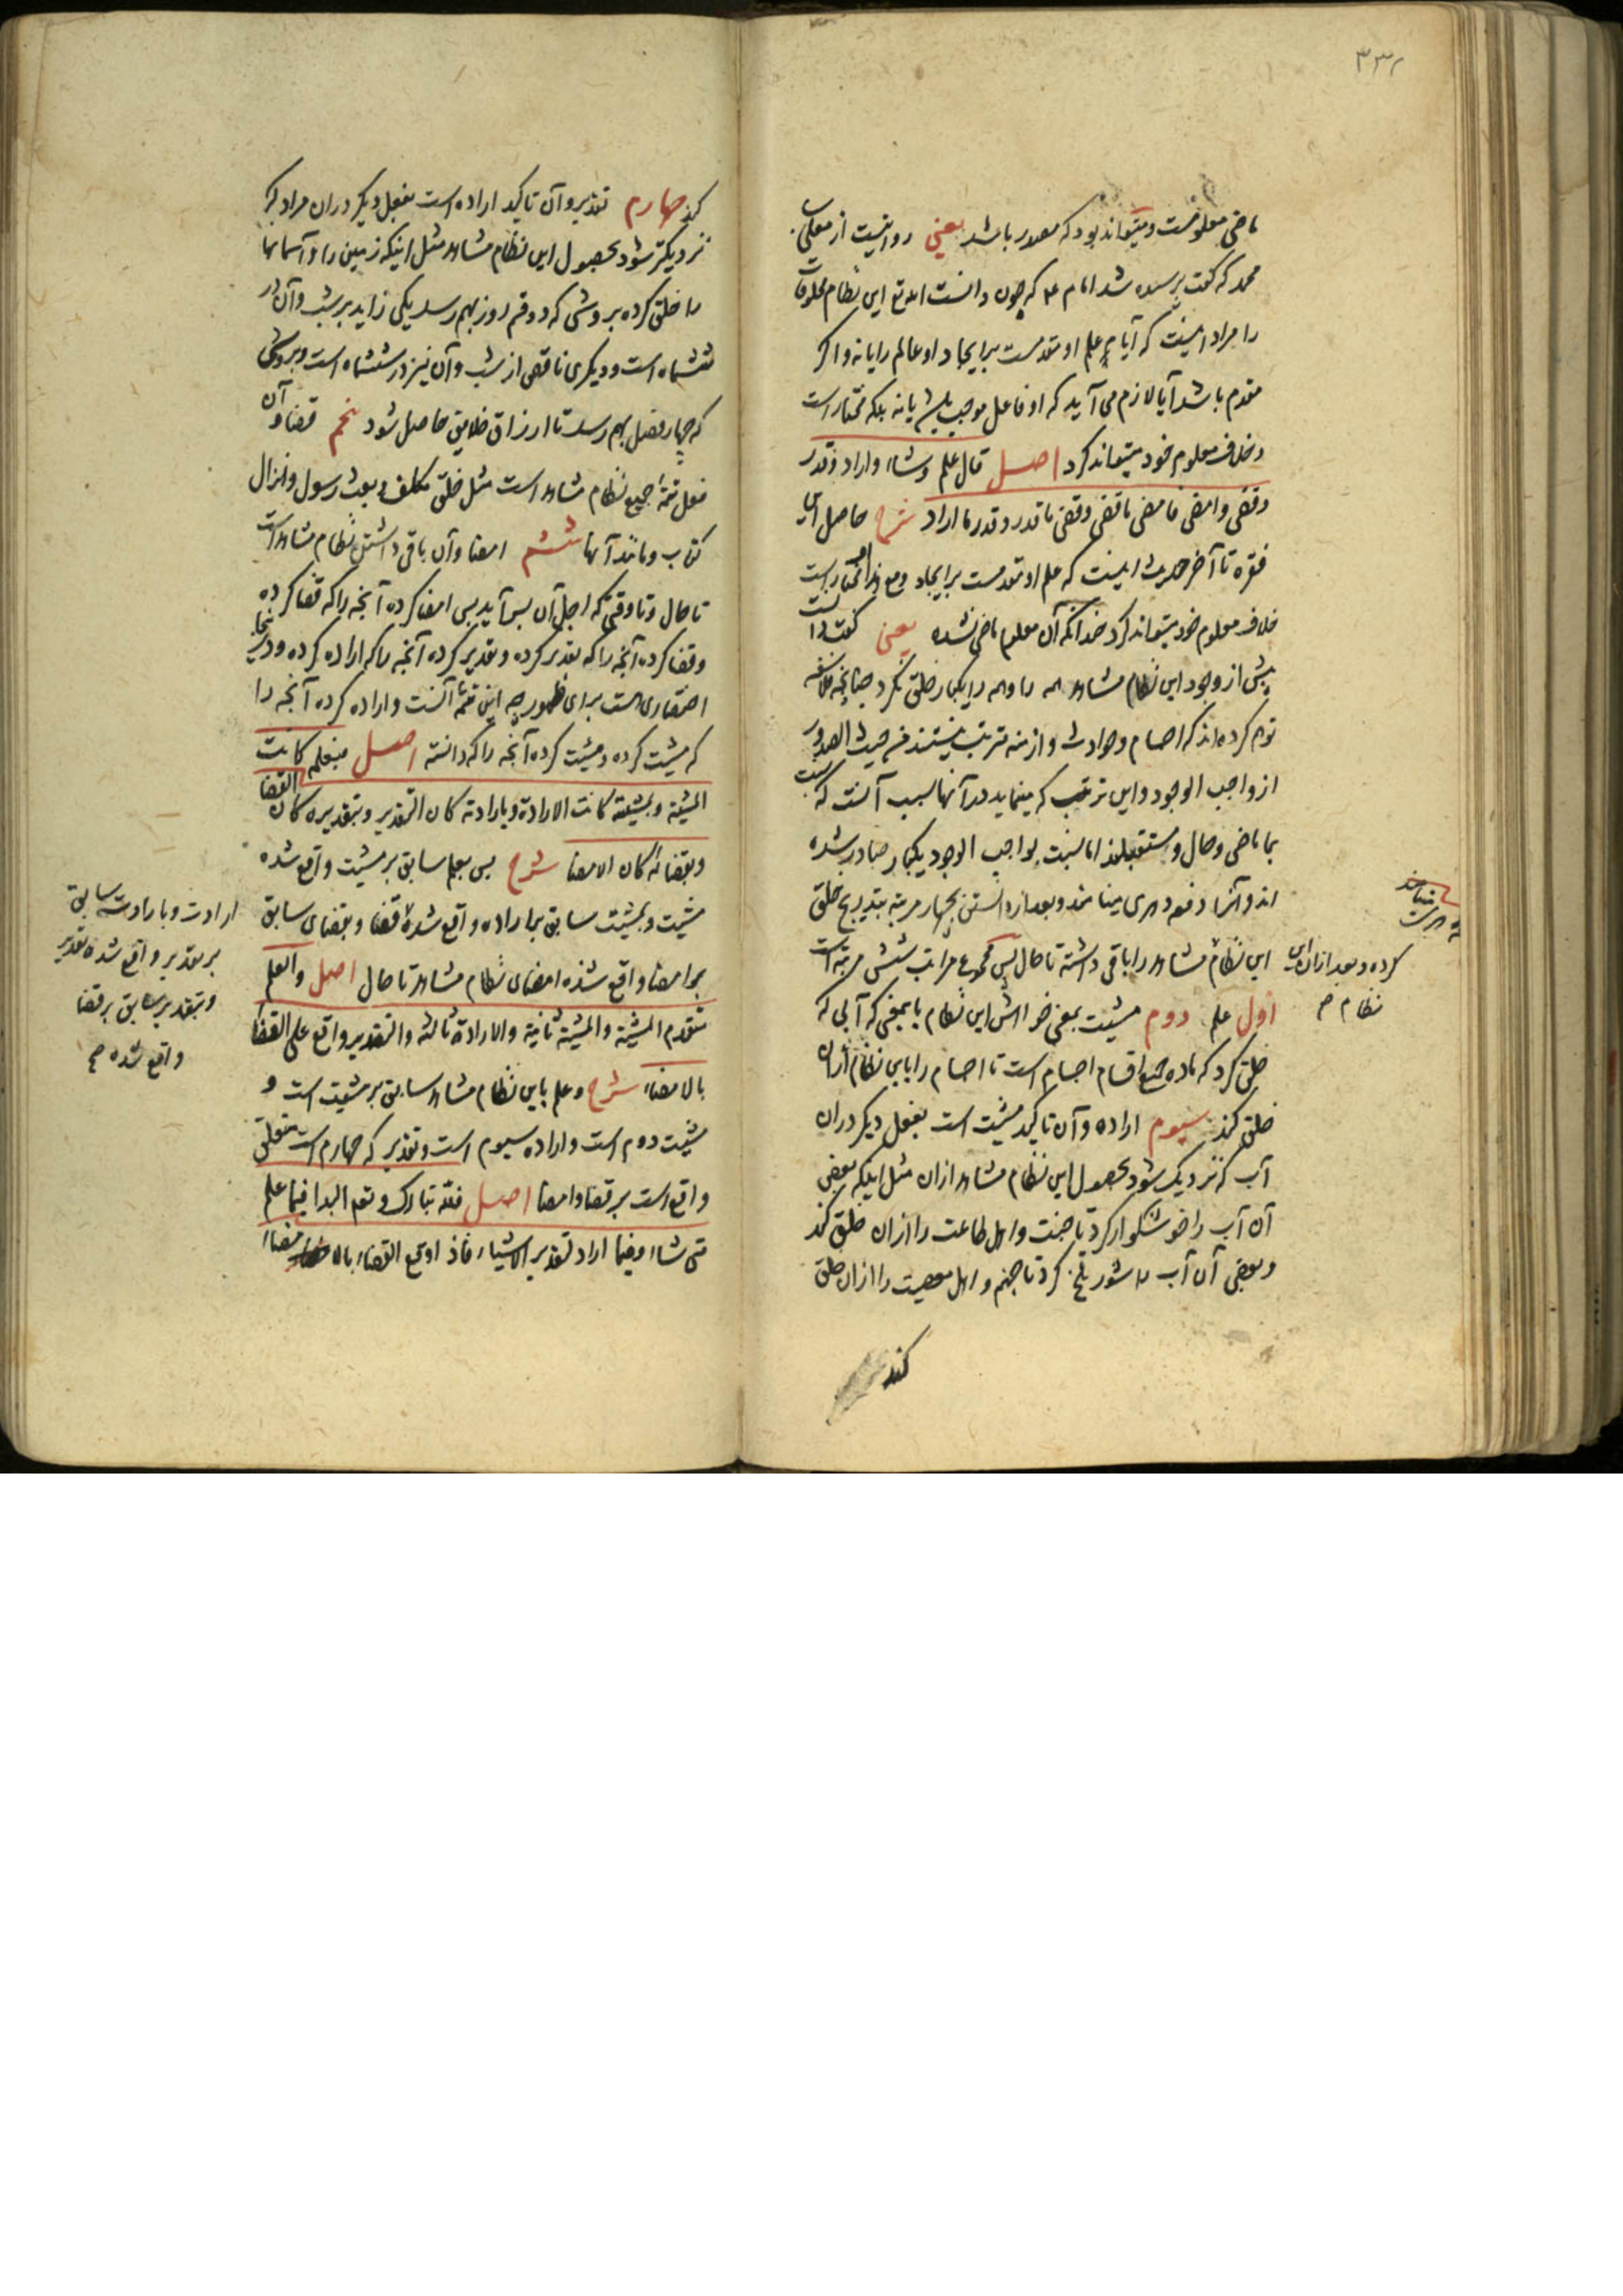 ۳۳۲
ماضی معلومست و میتواند بود که مصدر باشد یعنی روایتست از معلی بن
محمد که گفت پرسیده شد امام ع که چون دانست الله تع این نظام مخلوقات
را مراد اینست که آیا علم او مقدمست بر ایجاد او عالم را یا نه و اگر
مقدم باشد آیا لازم می آید که او فاعل موجب باشد یا نه بلکه مختار است
و خلاف معلوم خود میتواند کرد اصل قال علم و شاء و اراد و قدر
و قضی و امضی فامضی ما قضی و قضی ما قدر و قدر ما اراد شرح حاصل این
فقره تا آخر حدیث اینست که علم او مقدمست بر ایجاد و مع هذا او مختار است
خلاف معلوم خود میتواند کرد چندانکه آن معلوم ماضی نشده یعنی گفت دانست
پیش از وجود این نظام مشاهد همه را و همه را یکبار خلق نکرد چنانچه فلاسفه
توهم کرده اند که اجسام و حوادث و ازمنه مترتب نیستند من حیث الصدور
از واجب الوجود و این ترتب که مینماید در آنها بسبب آنست که نسبت
بما ماضی و حال و مستقبلند اما نسبت بواجب الوجود یکبار صادر شده
اند و آنرا دفعه دهری مینامند و بعد از دانستن بچهار مرتبه بتدریج خلق
این نظام مشاهد را باقی داشته تا حال پس مجموع مراتب شش مرتبه است
کرده و بعد از آن این
نظام ص
اول علم دوم مشیت بمعنی خواهش این نظام باینمعنی که آبی که
خلق کرد که ماده جمیع اقسام اجسام است تا اجسام را باین نظام از آن
خلق کند سیوم اراده و آن تاکید مشیت است بفعل دیگر در آن
آب که نزدیک شود بحصول این نظام مشاهد از آن مثل اینکه بعضی
آن آب را خوشگوار کرد تا جنت و اهل طاعت را از آن خلق کند
و بعضی آن آب را شور تلخ کرد تا جهنم و اهل معصیت را از آن خلق
کند
کند چهارم تقدیر و آن تاکید اراده است بفعل دیگر در آن مراد که
نزدیکتر شود بحصول این نظام مشاهد مثل اینکه زمین را و آسمانها
را خلق کرده بروشی که دو قسم روز بهم رسد یکی زاید بر شب و آن در
ششماه است و دیگری ناقص از شب و آن نیز در ششماه است و بروشی
که چهار فصل بهم رسد تا ارزاق خلایق حاصل شود پنجم قضا و آن
فعل تتمه جمیع نظام مشاهد است مثل خلق مکلف و بعث رسول و انزال
کتاب و مانند آنها ششم امضا و آن باقی داشتن نظام مشاهد است
تا حال و تا وقتی که اجل آن بسر آید پس امضا کرده آنچه را که قضا کرده
و قضا کرده آنچه را که تقدیر کرده و تقدیر کرده آنچه را که اراده کرده و در اینجا
اختصاری هست برای ظهور چه این تتمه آنست و اراده کرده آنچه را
که مشیت کرده و مشیت کرده آنچه را که دانسته اصل فبعلمه کانت
المشیة و بمشیته کانت الارادة و بارادته کان التقدیر و بتقدیره کان القضا
و بقضائه کان الامضا شرح پس بعلم سابق بر مشیت واقع شده
مشیت و بمشیت سابق بر اراده واقع شده قضا و بقضای سابق
ارادت و بارادت سابق
بر تقدیر واقع شده تقدیر
و بتقدیر سابق بر قضا
واقع شده صح
بر امضا واقع شده امضای نظام مشاهد تا حال اصل و العلم
متقدم المشیة و المشیة ثانیة و الارادة ثالثة و التقدیر واقع علی القضا
بالامضاء شرح و علم باین نظام مشاهد سابق بر مشیت است و
مشیت دوم است و اراده سیوم است و تقدیر که چهارم است متعلق
واقع است بر قضا و امضا اصل فلله تبارک و تع البدا فیما علم
متی شاء و فیما اراد لتقدیر الاشیاء فاذا وقع القضاء بالامضاء